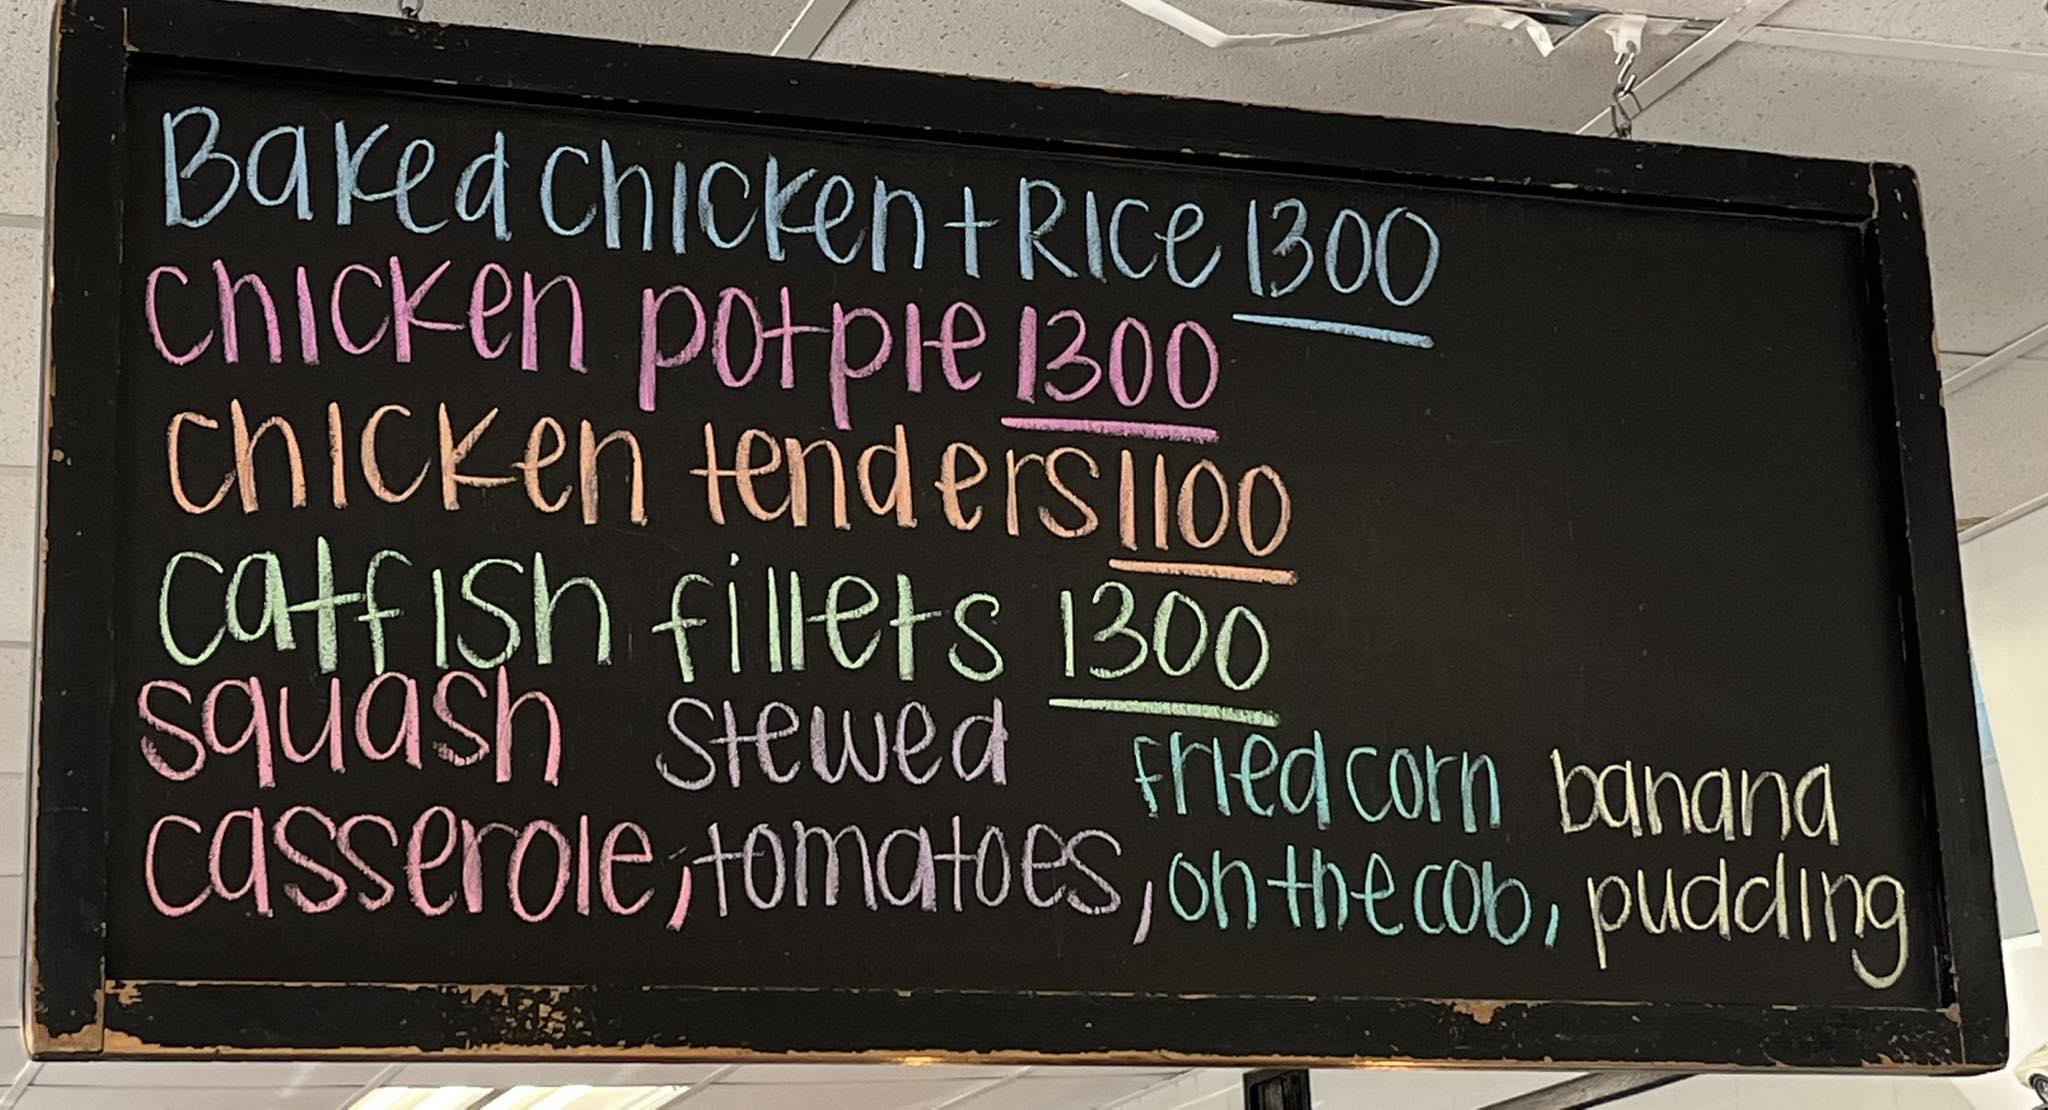 Baked chicken + Rice 1300
chicken potpie 1300
chicken tenders 1100
catfish fillets 1300
squash stewed fried corn banana
casserole, tomatoes, on the cob, pudding